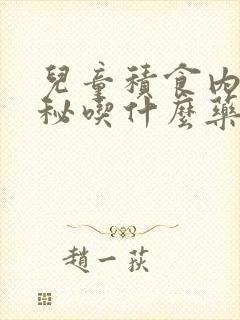 兒童積食內
秘喫什麽藥
趙一荻